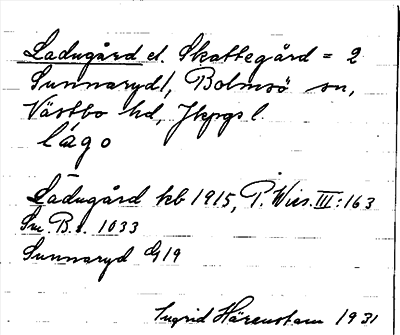 Ladugård el. Skattegård = 2
Sunnaryd/, Bolmsö sn,
Västbo hd, Jkpgs l.
lágo
Ladugård kb 1915, P. Wies. III: 163
Sm. B. 1033
Sunnaryd G19
Ingrid Härenstam 1931